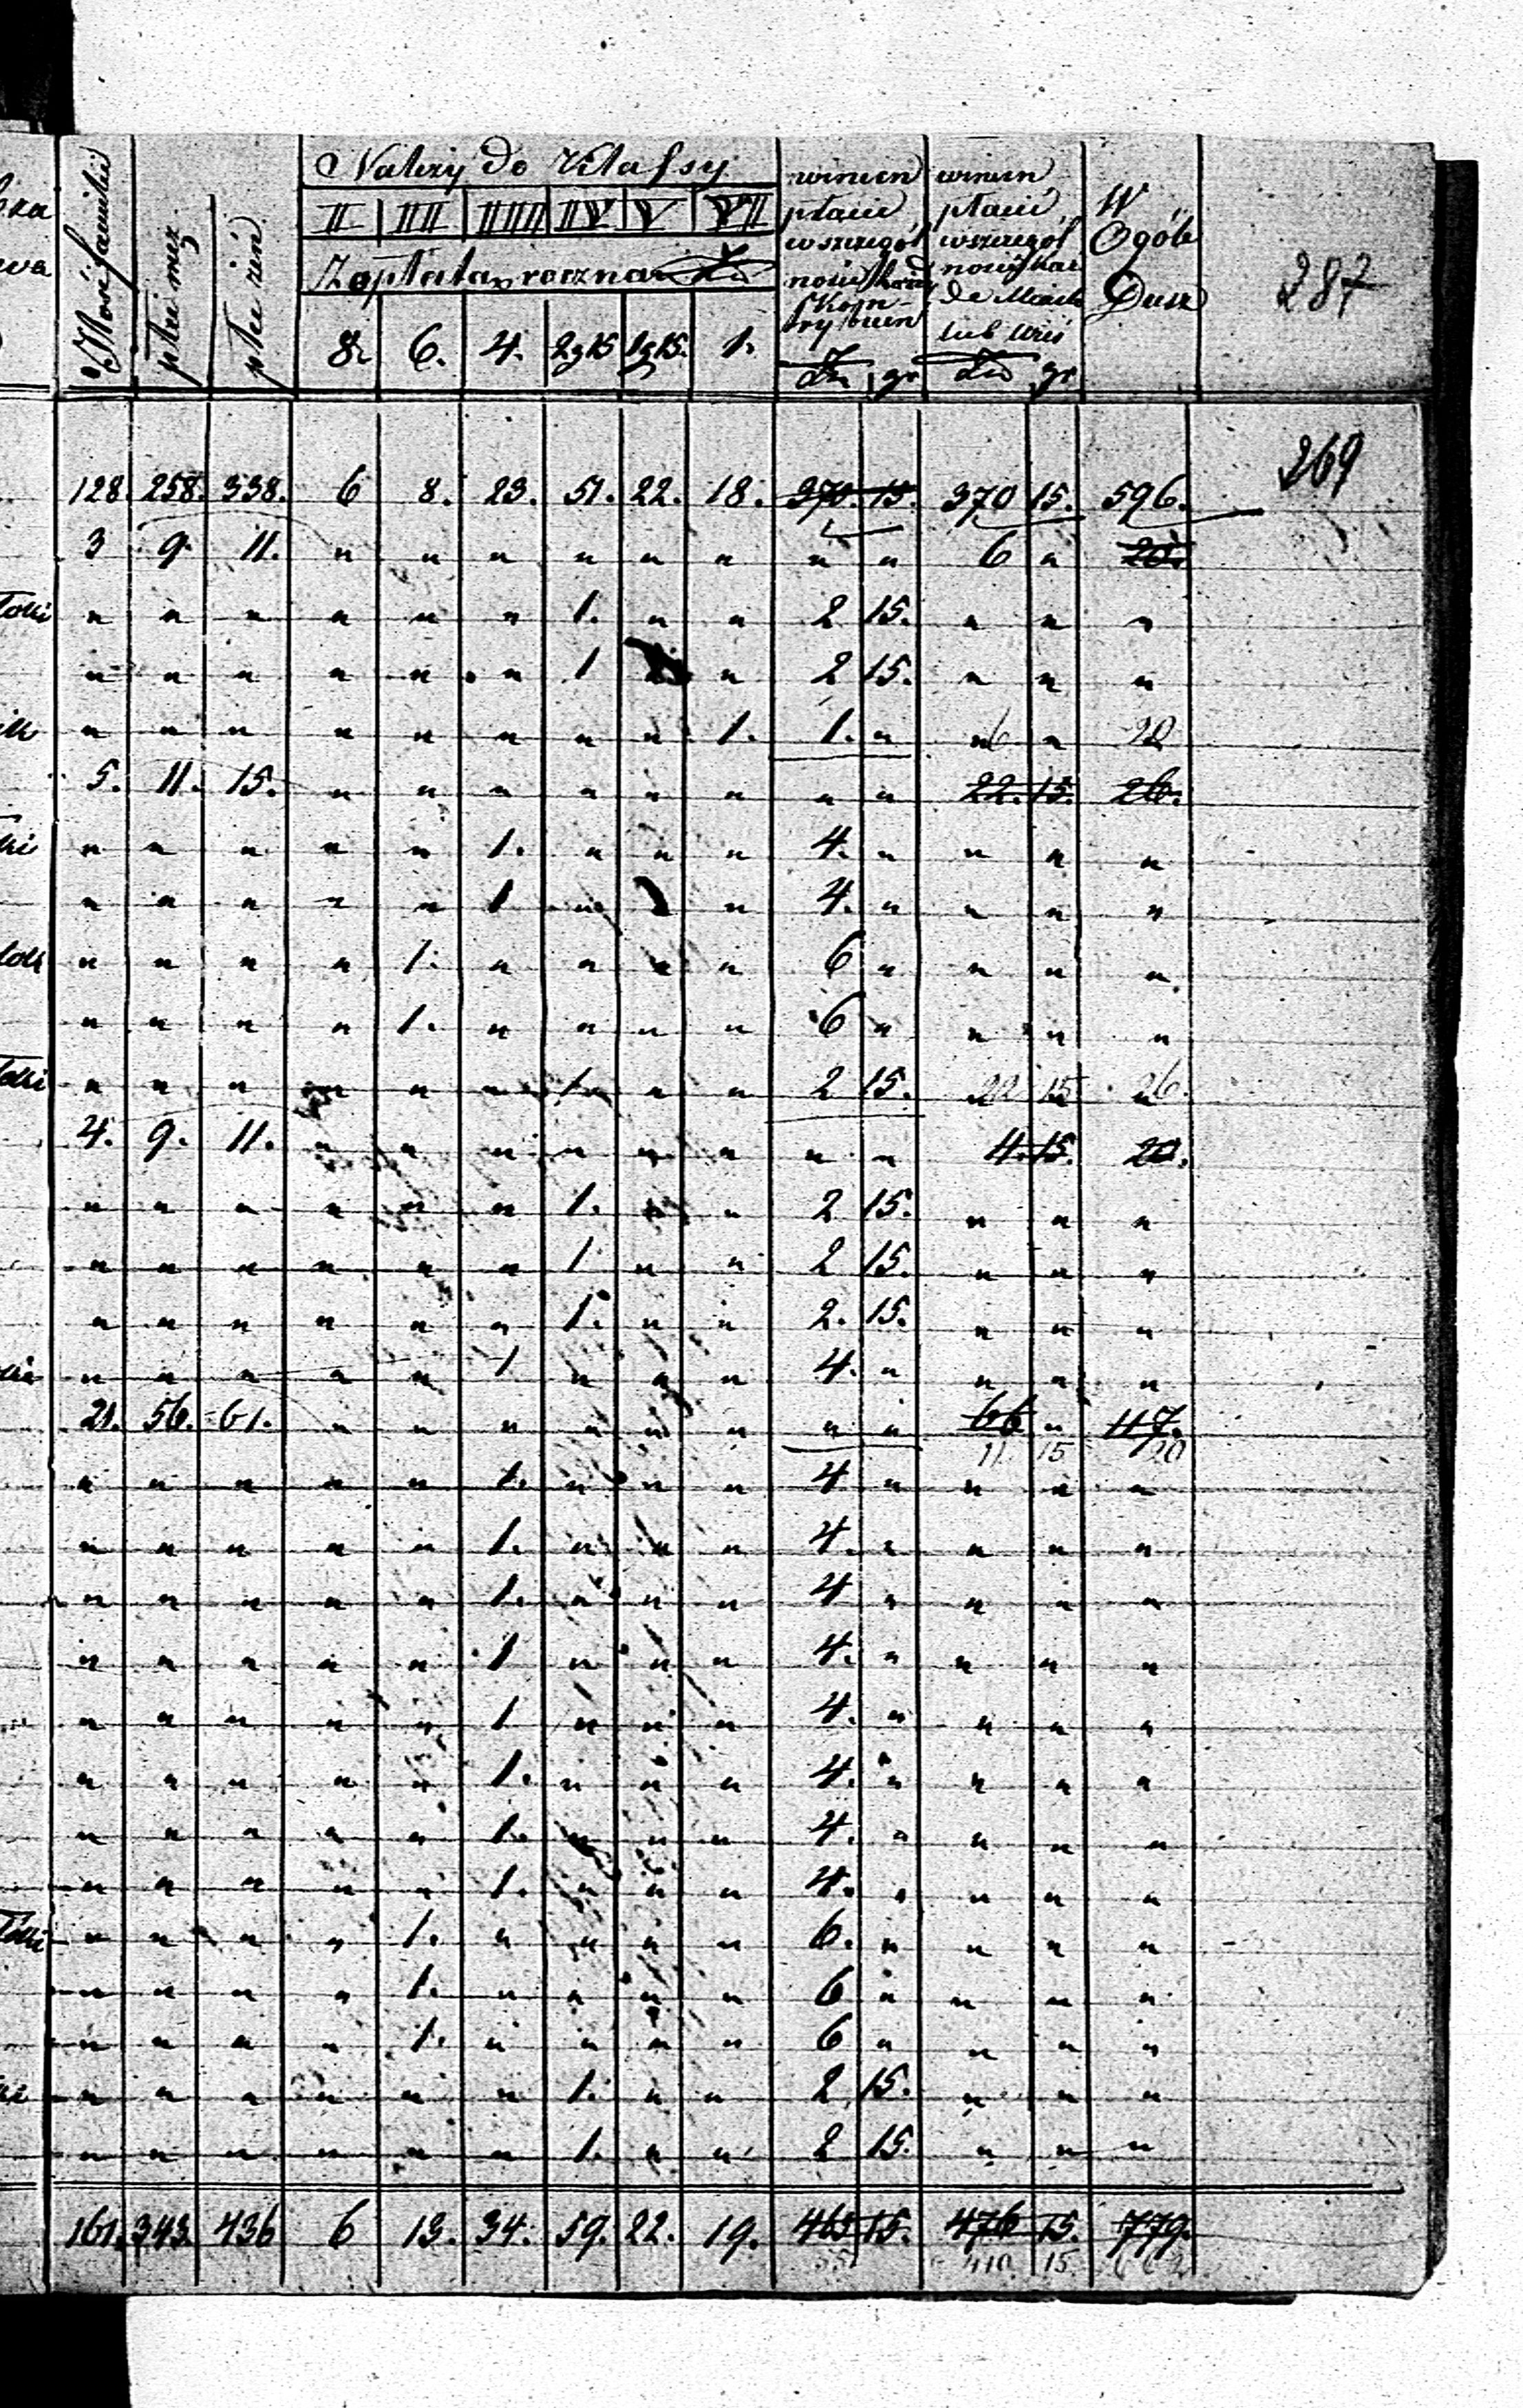 Ilość familii | płci męz. | płci żeń. | Należy do Klassy | winien płacić w szczegól ności każdy Kon- trybuen | winien płacić w szczegól ności każ de Miasto lub wieś | W Ogóle Dusz | 287
II | III | IIII | IV | V | VI
Zapłata roczna Zło
8. | 6. | 4. | 2 g 15 | 1 g 15. | 1. | Zł. | gr | Zło | gr
269
128. | 258. | 338. | 6 | 8. | 23. | 51. | 22. | 18. | 370. | 15. | 370 | 15. | 596.
3 | 9. | 11. | " | " | " | " | " | " | " | " | 6 | " | 20.
" | " | " | " | " | " | 1. | " | " | 2 | 15. | " | " | "
" | " | " | " | " | " | 1 | " | " | 2 | 15. | " | " | "
" | " | " | " | " | " | " | " | 1. | 1. | " | 6 | " | 20
5. | 11. | 15. | " | " | " | " | " | " | " | " | 22. | 15. | 26.
" | " | " | " | " | 1. | " | " | " | 4. | " | " | " | "
" | " | " | " | " | 1 | " | " | " | 4. | " | " | " | "
" | " | " | " | 1. | " | " | " | " | 6 | " | " | " | "
" | " | " | " | 1. | " | " | " | " | 6 | " | " | " | "
" | " | " | " | " | " | 1. | " | " | 2 | 15. | 22 | 15 | 26.
4. | 9. | 11. | " | " | " | " | " | " | " | " | 4. | 15. | 20.
" | " | " | " | " | " | 1. | " | " | 2 | 15. | " | " | "
" | " | " | " | " | " | 1 | " | " | 2 | 15. | " | " | "
" | " | " | " | " | " | 1. | " | " | 2. | 15. | " | " | "
" | " | " | " | " | 1. | " | " | " | 4. | " | " | " | "
21. | 56. | 61. | " | " | " | " | " | " | " | " | 66 | " | 117.
11 | 15 | 20
" | " | " | " | " | 1. | " | " | " | 4 | " | " | " | "
" | " | " | " | " | 1. | " | " | " | 4. | " | " | " | "
" | " | " | " | " | 1. | " | " | " | 4 | " | " | " | "
" | " | " | " | " | 1 | " | " | " | 4. | " | " | " | "
" | " | " | " | " | 1 | " | " | " | 4. | " | " | " | "
" | " | " | " | " | 1. | " | " | " | 4. | " | " | " | "
" | " | " | " | " | 1. | " | " | " | 4. | " | " | " | "
" | " | " | " | " | 1. | " | " | " | 4. | " | " | " | "
" | " | " | " | 1. | " | " | " | " | 6. | " | " | " | "
" | " | " | " | 1. | " | " | " | " | 6 | " | " | " | "
" | " | " | " | 1. | " | " | " | " | 6 | " | " | " | "
" | " | " | " | " | " | 1. | " | " | 2 | 15. | " | " | "
" | " | " | " | " | " | 1. | " | " | 2 | 15. | " | " | "
161. | 343. | 436 | 6 | 13. | 34. | 59. | 22. | 19. | 465 | 15. | 476 | 15. | 779.
410. | 15. | 662